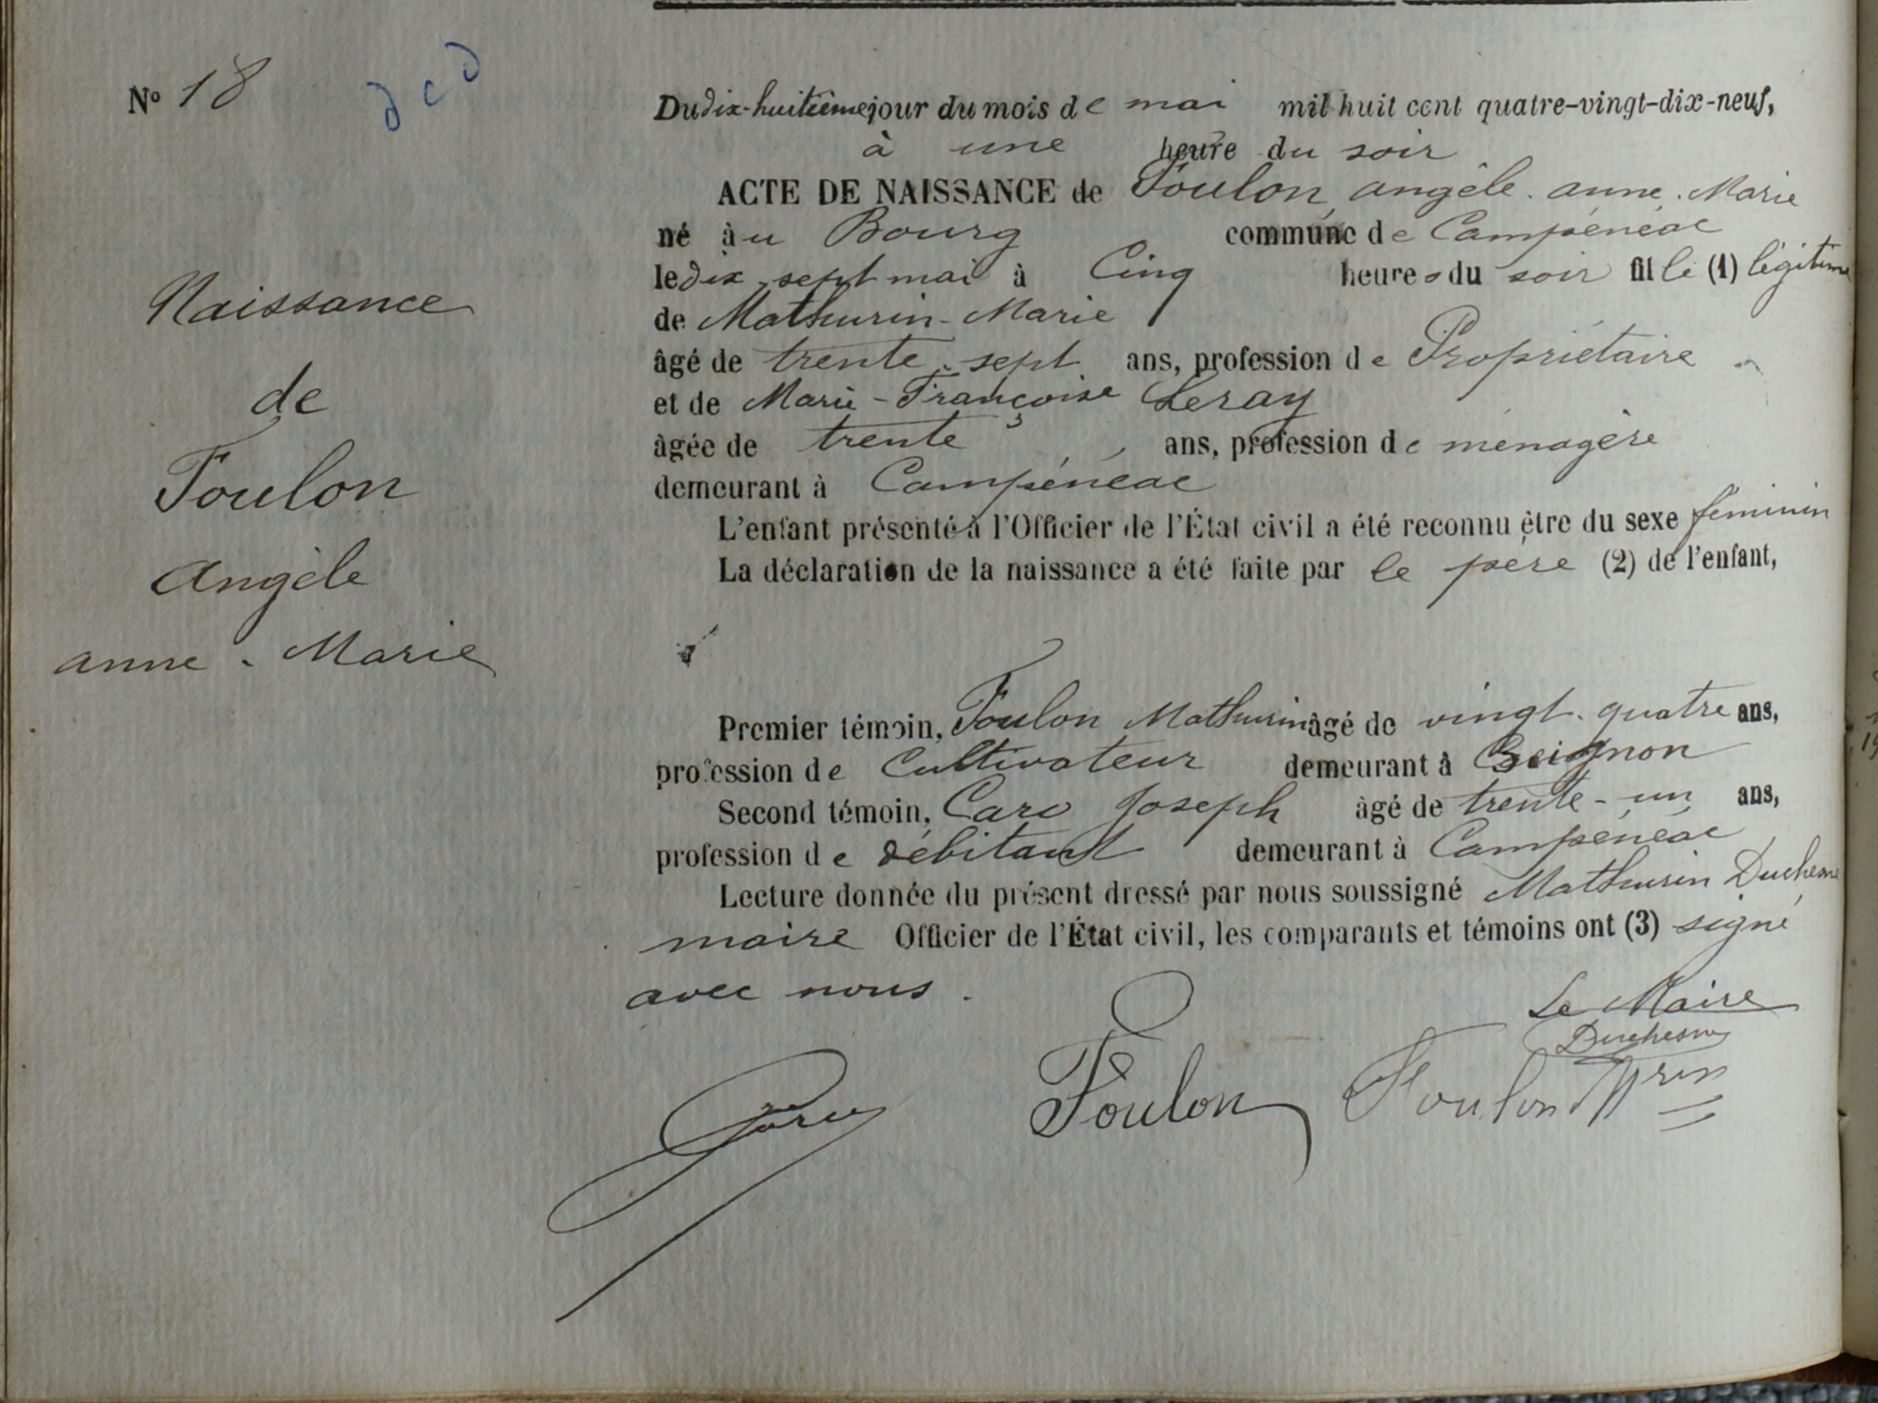 Nº 18
dcd
Naissance
de
Foulon
Angèle
anne - Marie
Du dix-huitième jour du mois de mai mil huit cent quatre-vingt-dix-neuf,
à une heure du soir
ACTE DE NAISSANCE de Foulon, angèle - anne - Marie
né àu Bourg commune de Campénéac
le dix-sept mai à Cinq heures du soir fille (1) légitime
de Mathurin - Marie
âgé de trente-sept ans, profession de Propriétaire
et de Marie - Françoise Leray
âgée de trente ans, profession de ménagère
demeurant à Campénéac
L'enfant présenté à l'Officier de l'État civil a été reconnu être du sexe féminin
La déclaration de la naissance a été faite par le père (2) de l'enfant,
Premier témoin, Foulon Mathurin âgé de vingt-quatre ans,
profession de Cultivateur demeurant à Beignon
Second témoin, Caro Joseph âgé de trente-un ans,
profession de débitant demeurant à Campénéac
Lecture donnée du présent dressé par nous soussigné Mathurin Duchesne
maire Officier de l'État civil, les comparants et témoins ont (3) signé
avec nous.
Le Maire
Duchesne
Caro Foulon Foulon Mrin